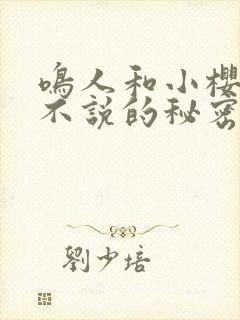 鳴人和小櫻
不說的秘密
劉少培